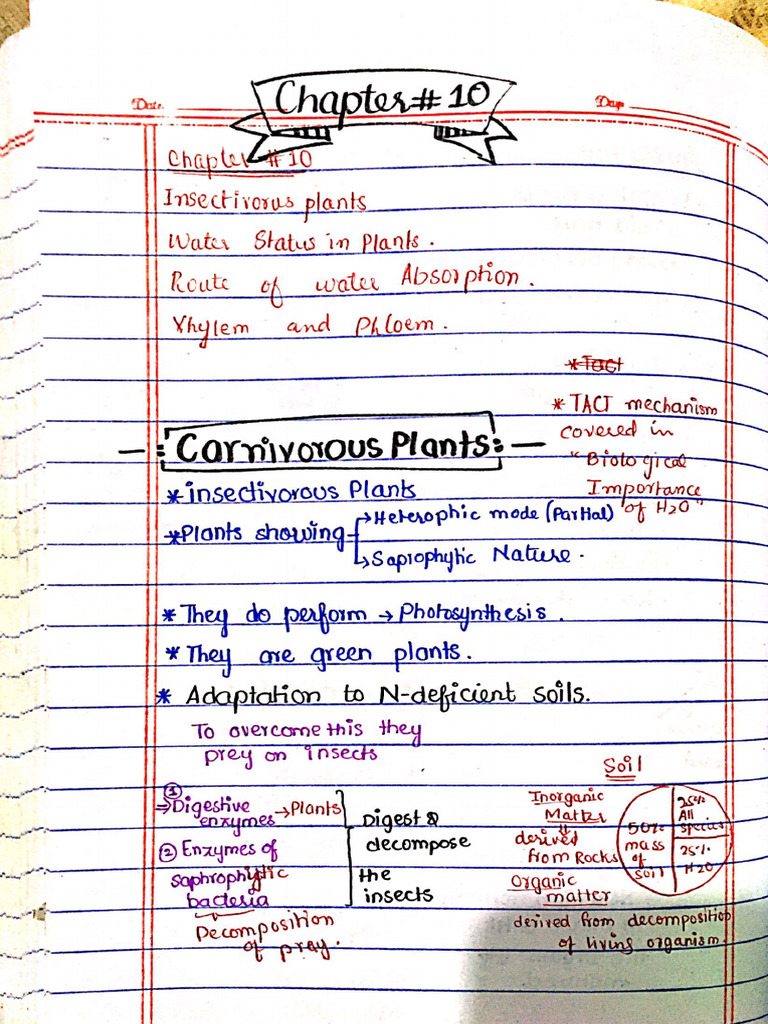 Date
Day
Chapter # 10
Chapter # 10
Insectivorus plants
Water Status in Plants.
Route of water Absorption.
Xhylem and Phloem.
* Tact
* TACT mechanism
covered in
"Biological
Importance
of H2O"
Carnivorous Plants:
* insectivorous Plants
* Plants showing
→ Heterophic mode (Partial)
↳ Saprophytic Nature.
* They do perform → Photosynthesis.
* They are green plants.
* Adaptation to N-deficient soils.
To overcome this they
prey on insects
① ⇒ Digestive enzymes → Plants
② Enzymes of
saphrophytic
bacteria
Decomposition
of pray.
Digest &
decompose
the
insects
Soil
Inorganic
Matter
derived
from Rocks
Organic
matter
derived from decomposition
of living organism.
50%
mass
of
soil
25%
All
species
25%
H2O